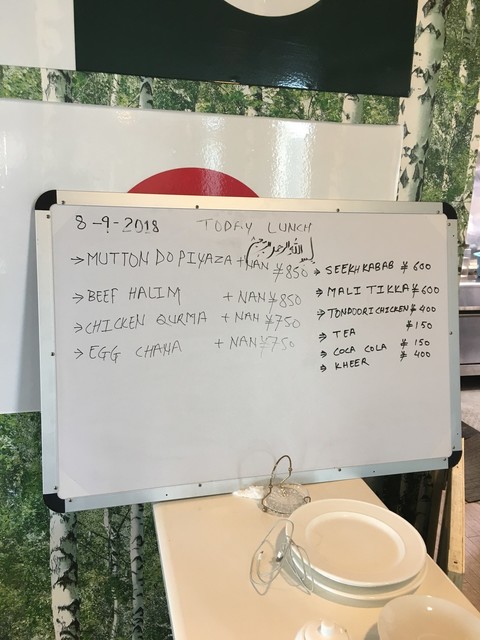 8-9-2018 TODAY LUNCH
بسم الله الرحمن الرحيم
→ MUTTON DO PIYAZA + NAN ¥850
→ BEEF HALIM + NAN ¥850
→ CHICKEN QURMA + NAN ¥750
→ EGG CHANA + NAN ¥750
→ SEEKH KABAB ¥600
→ MALI TIKKA ¥600
→ TONDOORI CHICKEN ¥400
→ TEA ¥150
→ COCA COLA ¥150
→ KHEER ¥400